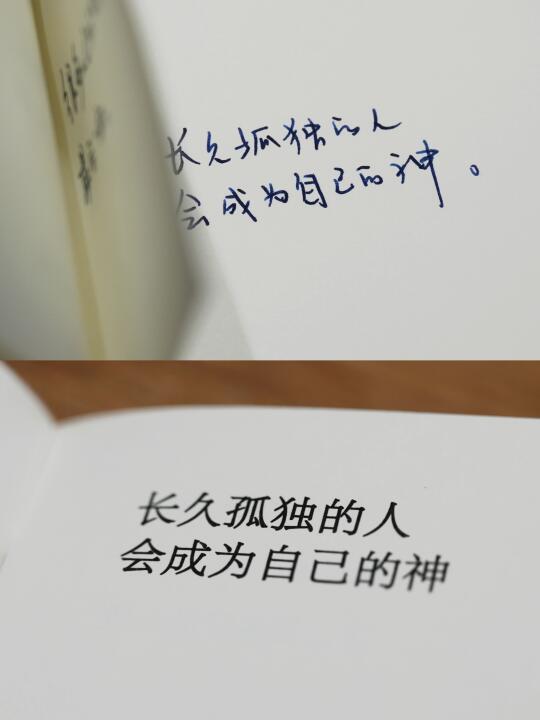 长久孤独的人
会成为自己的神。
长久孤独的人
会成为自己的神